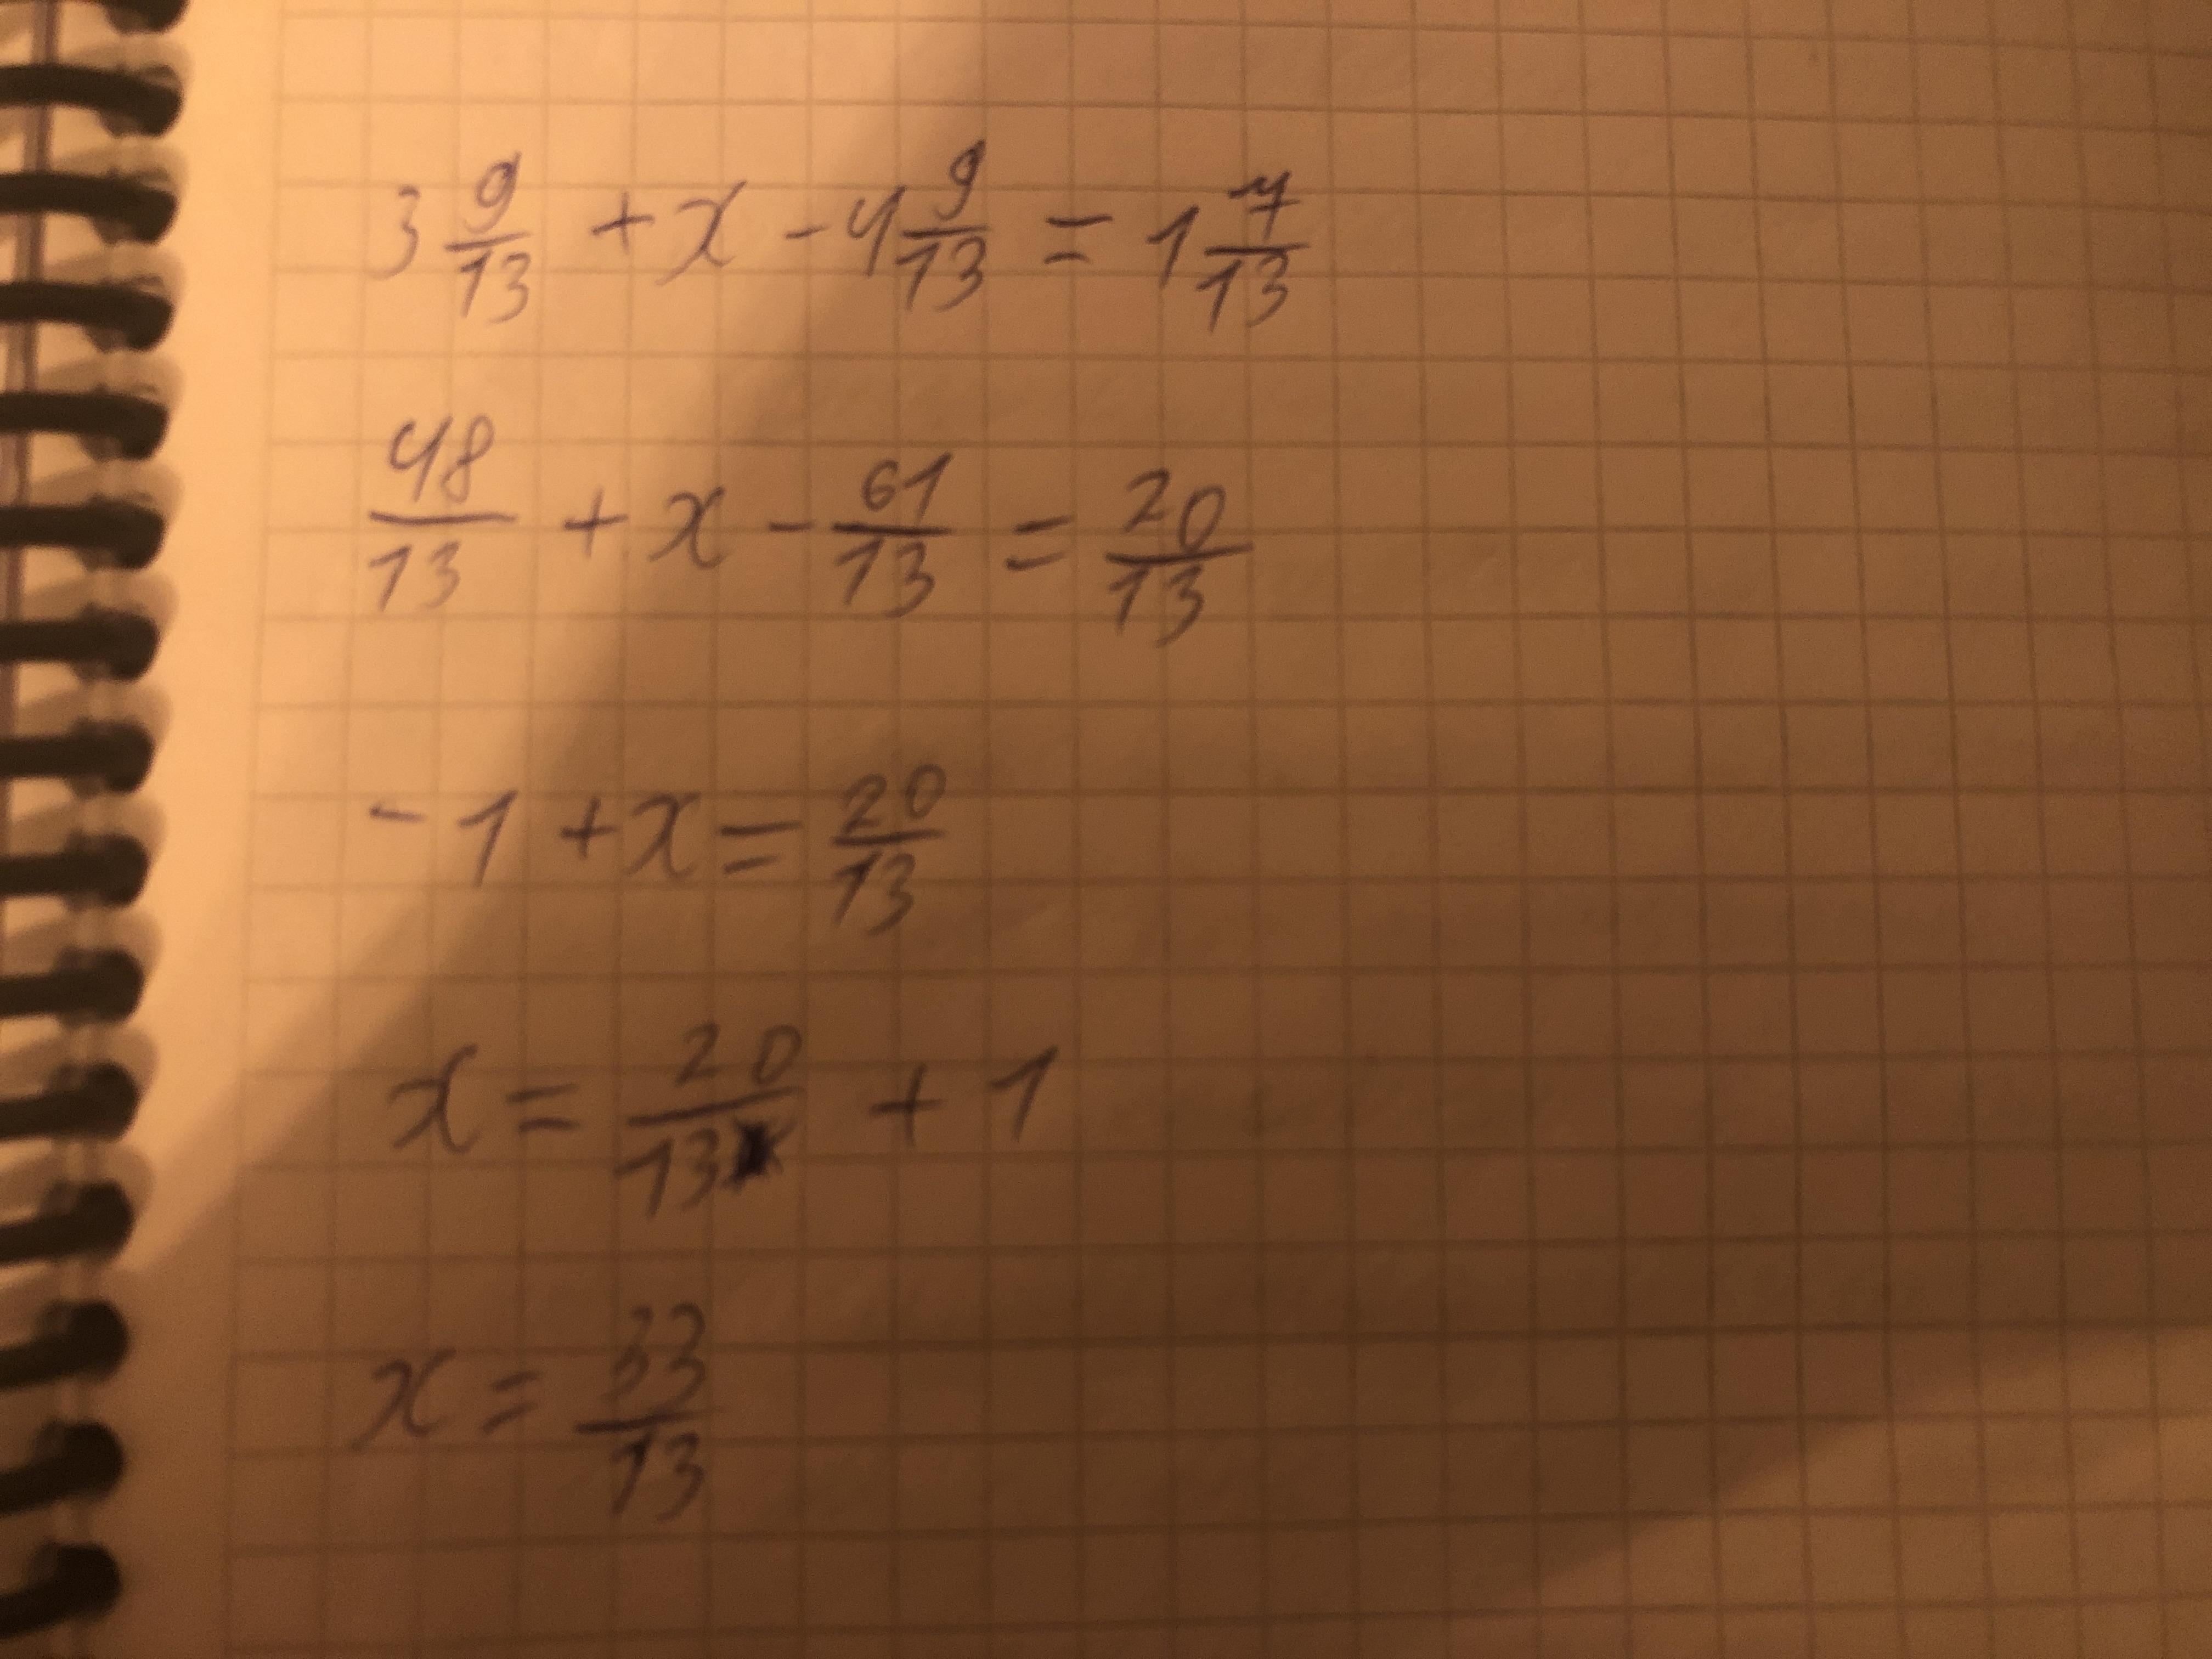 3 9/13 + x - 4 9/13 = 1 7/13
48/13 + x - 61/13 = 20/13
- 1 + x = 20/13
x = 20/13 + 1
x = 33/13